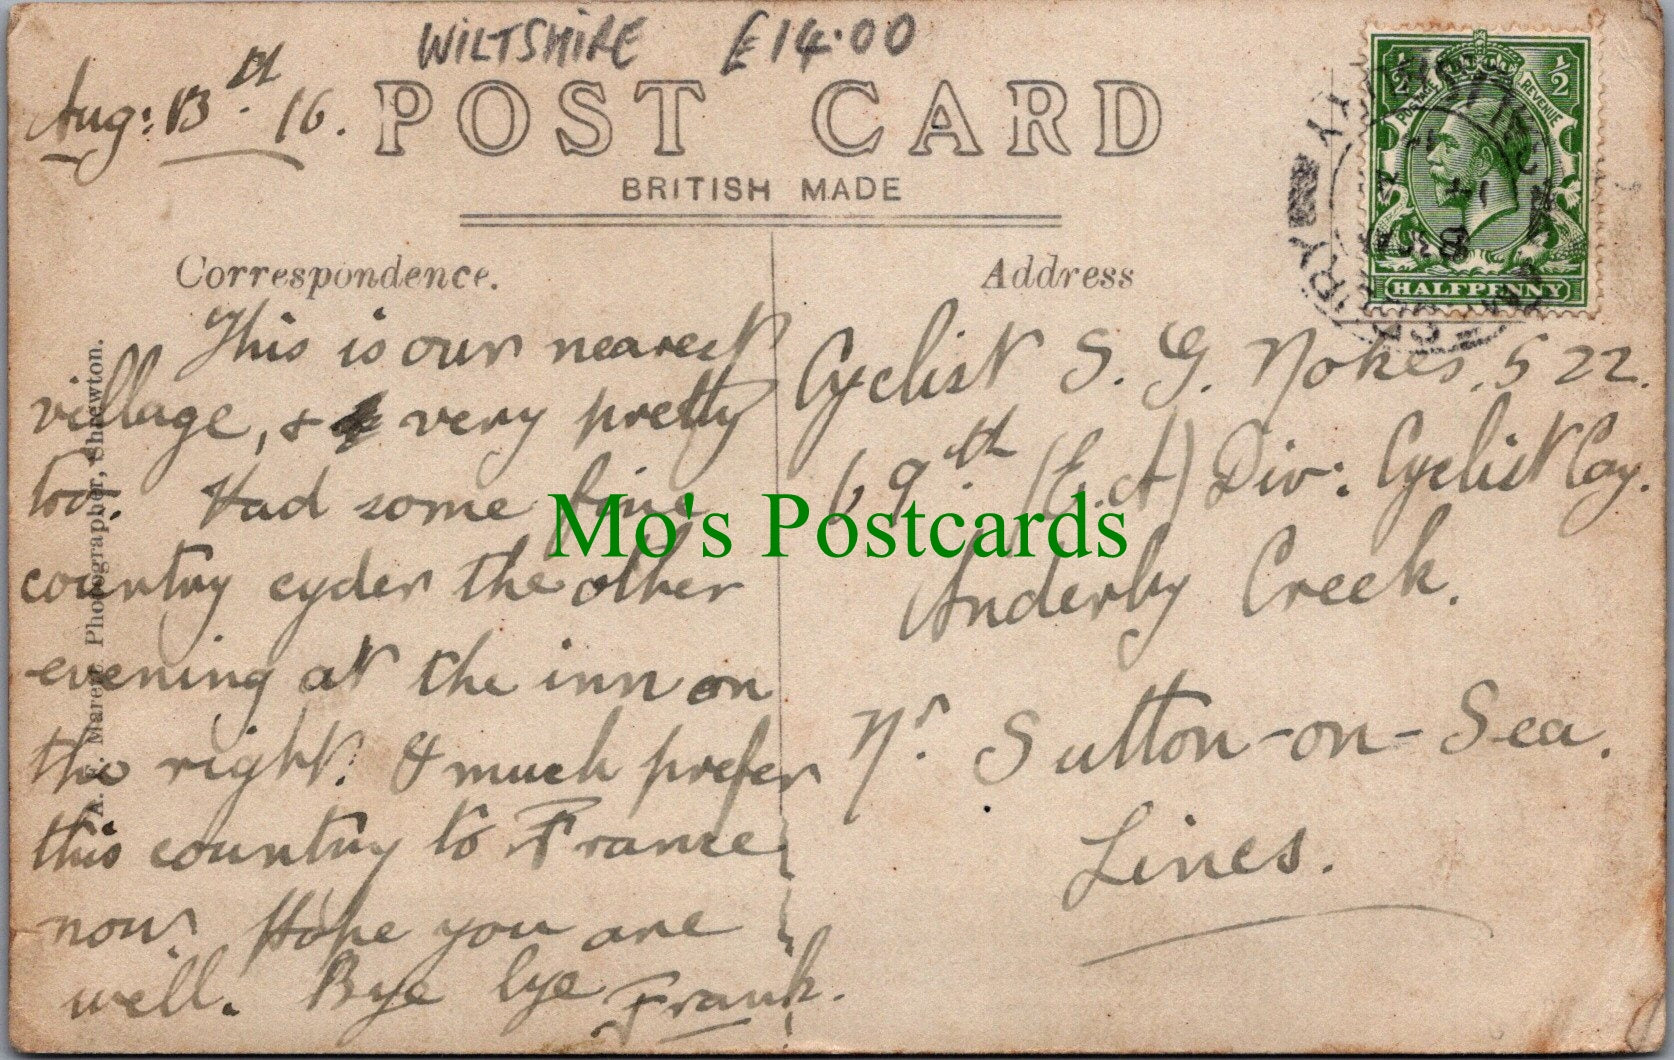 WILTSHIRE £14.00
Aug: 13th. 16.
POST CARD
BRITISH MADE
Correspondence.
This is our nearest
village, & very pretty
too! Had some fine
country cyder the other
evening at the inn on
the right. I much prefer
this country to France
now. Hope you are
well. Bye bye
Frank.
Address
Cyclist S. G. Nokes, 522.
69th. (E.A) Div: Cyclist Coy.
Anderby Creek.
Nr. Sutton-on-Sea.
Lincs.
½ POSTAGE REVENUE ½
HALFPENNY
Photographer, Shrewton.
Mo's Postcards